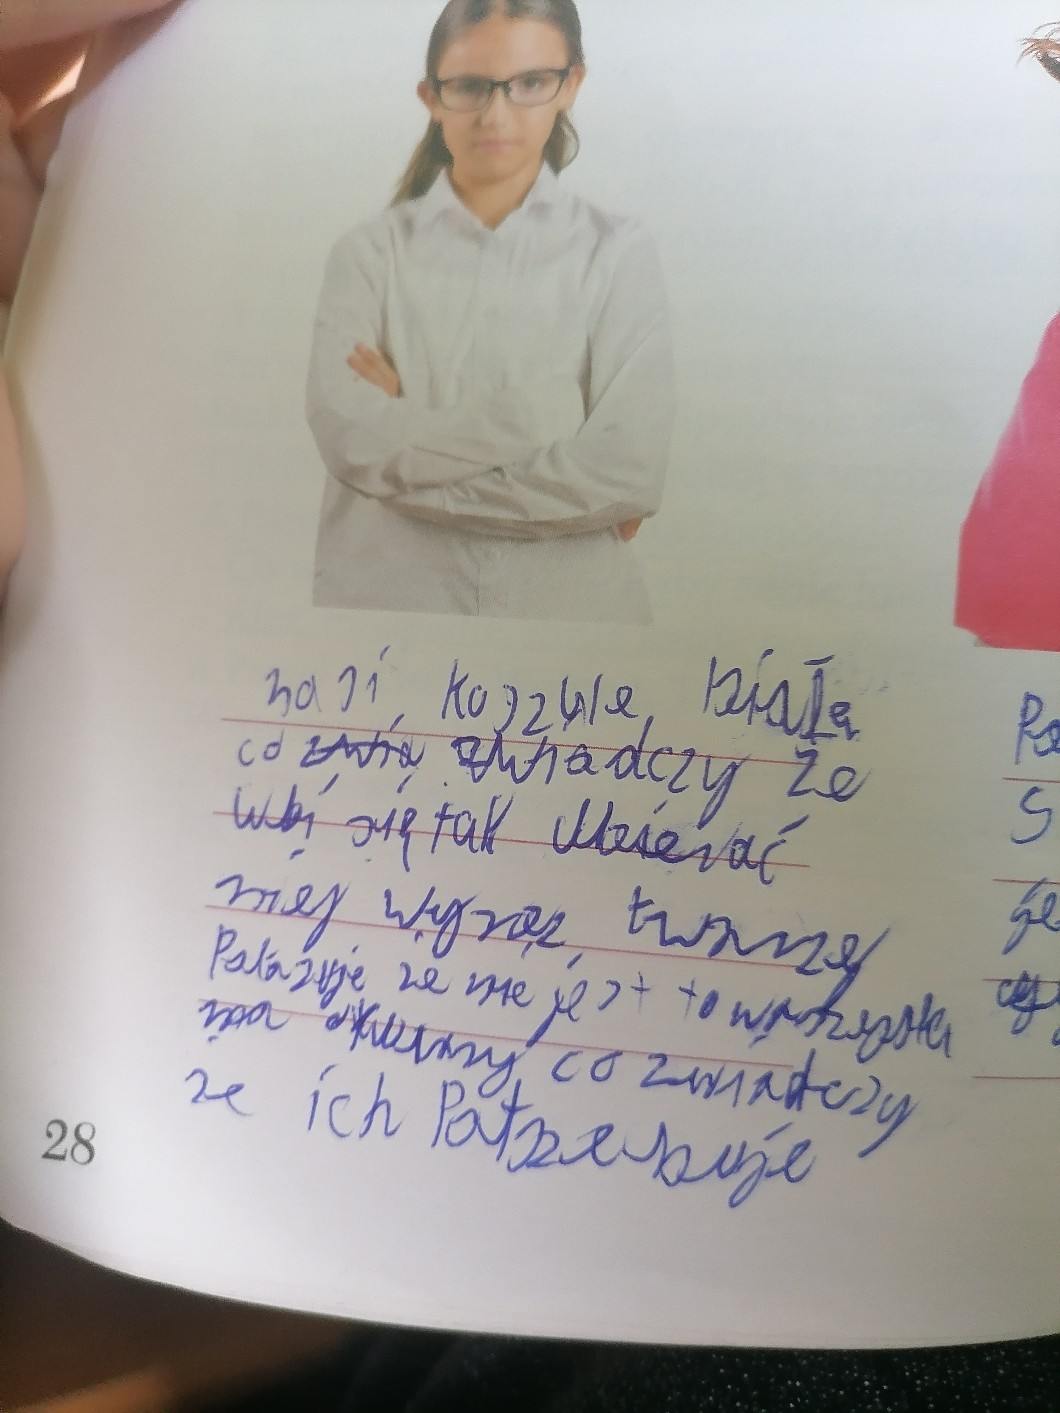 nosi, koszule, białą
co zwiadczy że
lubi się tak ubierać
niej wyraz twarzy
Pakazuje ze nie jest towarzyska
ma okulary co zwiadczy
ze ich Patrzebuje
28
Pa
S
je